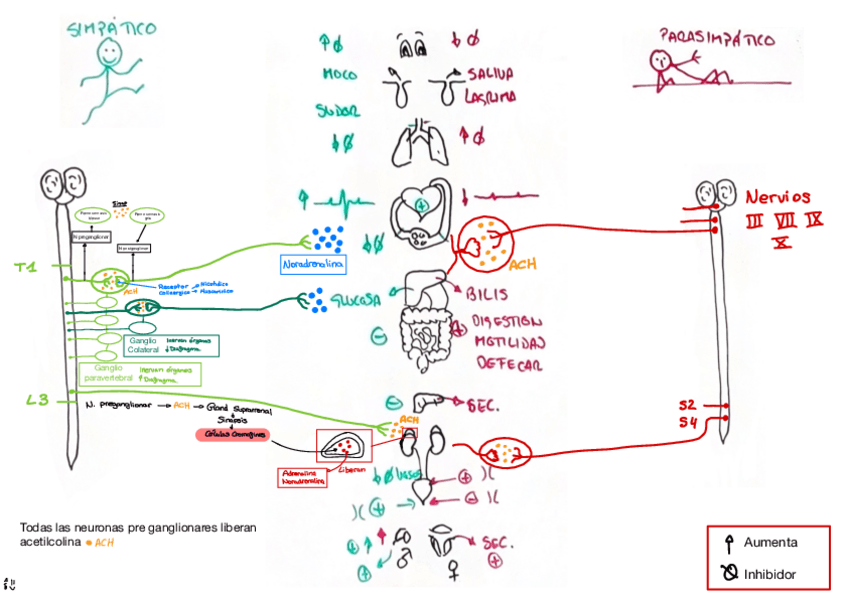 SIMPÁTICO
PARASIMPÁTICO
MOCO
SALIVA
LAGRIMA
SUDOR
Sims
N.preganglionar
Nervios
III VII IX
X
T1
Noradrenalina
ACH
ACH
Receptor → Nicotínico
colinergico → Muscarínico
GLUCOSA
BILIS
DIGESTION
MOTILIDAD
DEFECAR
Ganglio
Colateral
Inervan órganos
↓ Diafragma
Ganglio
paravertebral
Inervan órganos
↑ Diafragma
L3
N. preganglionar → ACH → Gland Suprarrenal
Sinapsis
Células Cromafines
SEC.
S2
S4
ACH
Liberan
Adrenalina
Noradrenalina
VASOS
SEC.
Todas las neuronas pre ganglionares liberan
acetilcolina ACH
Aumenta
Inhibidor